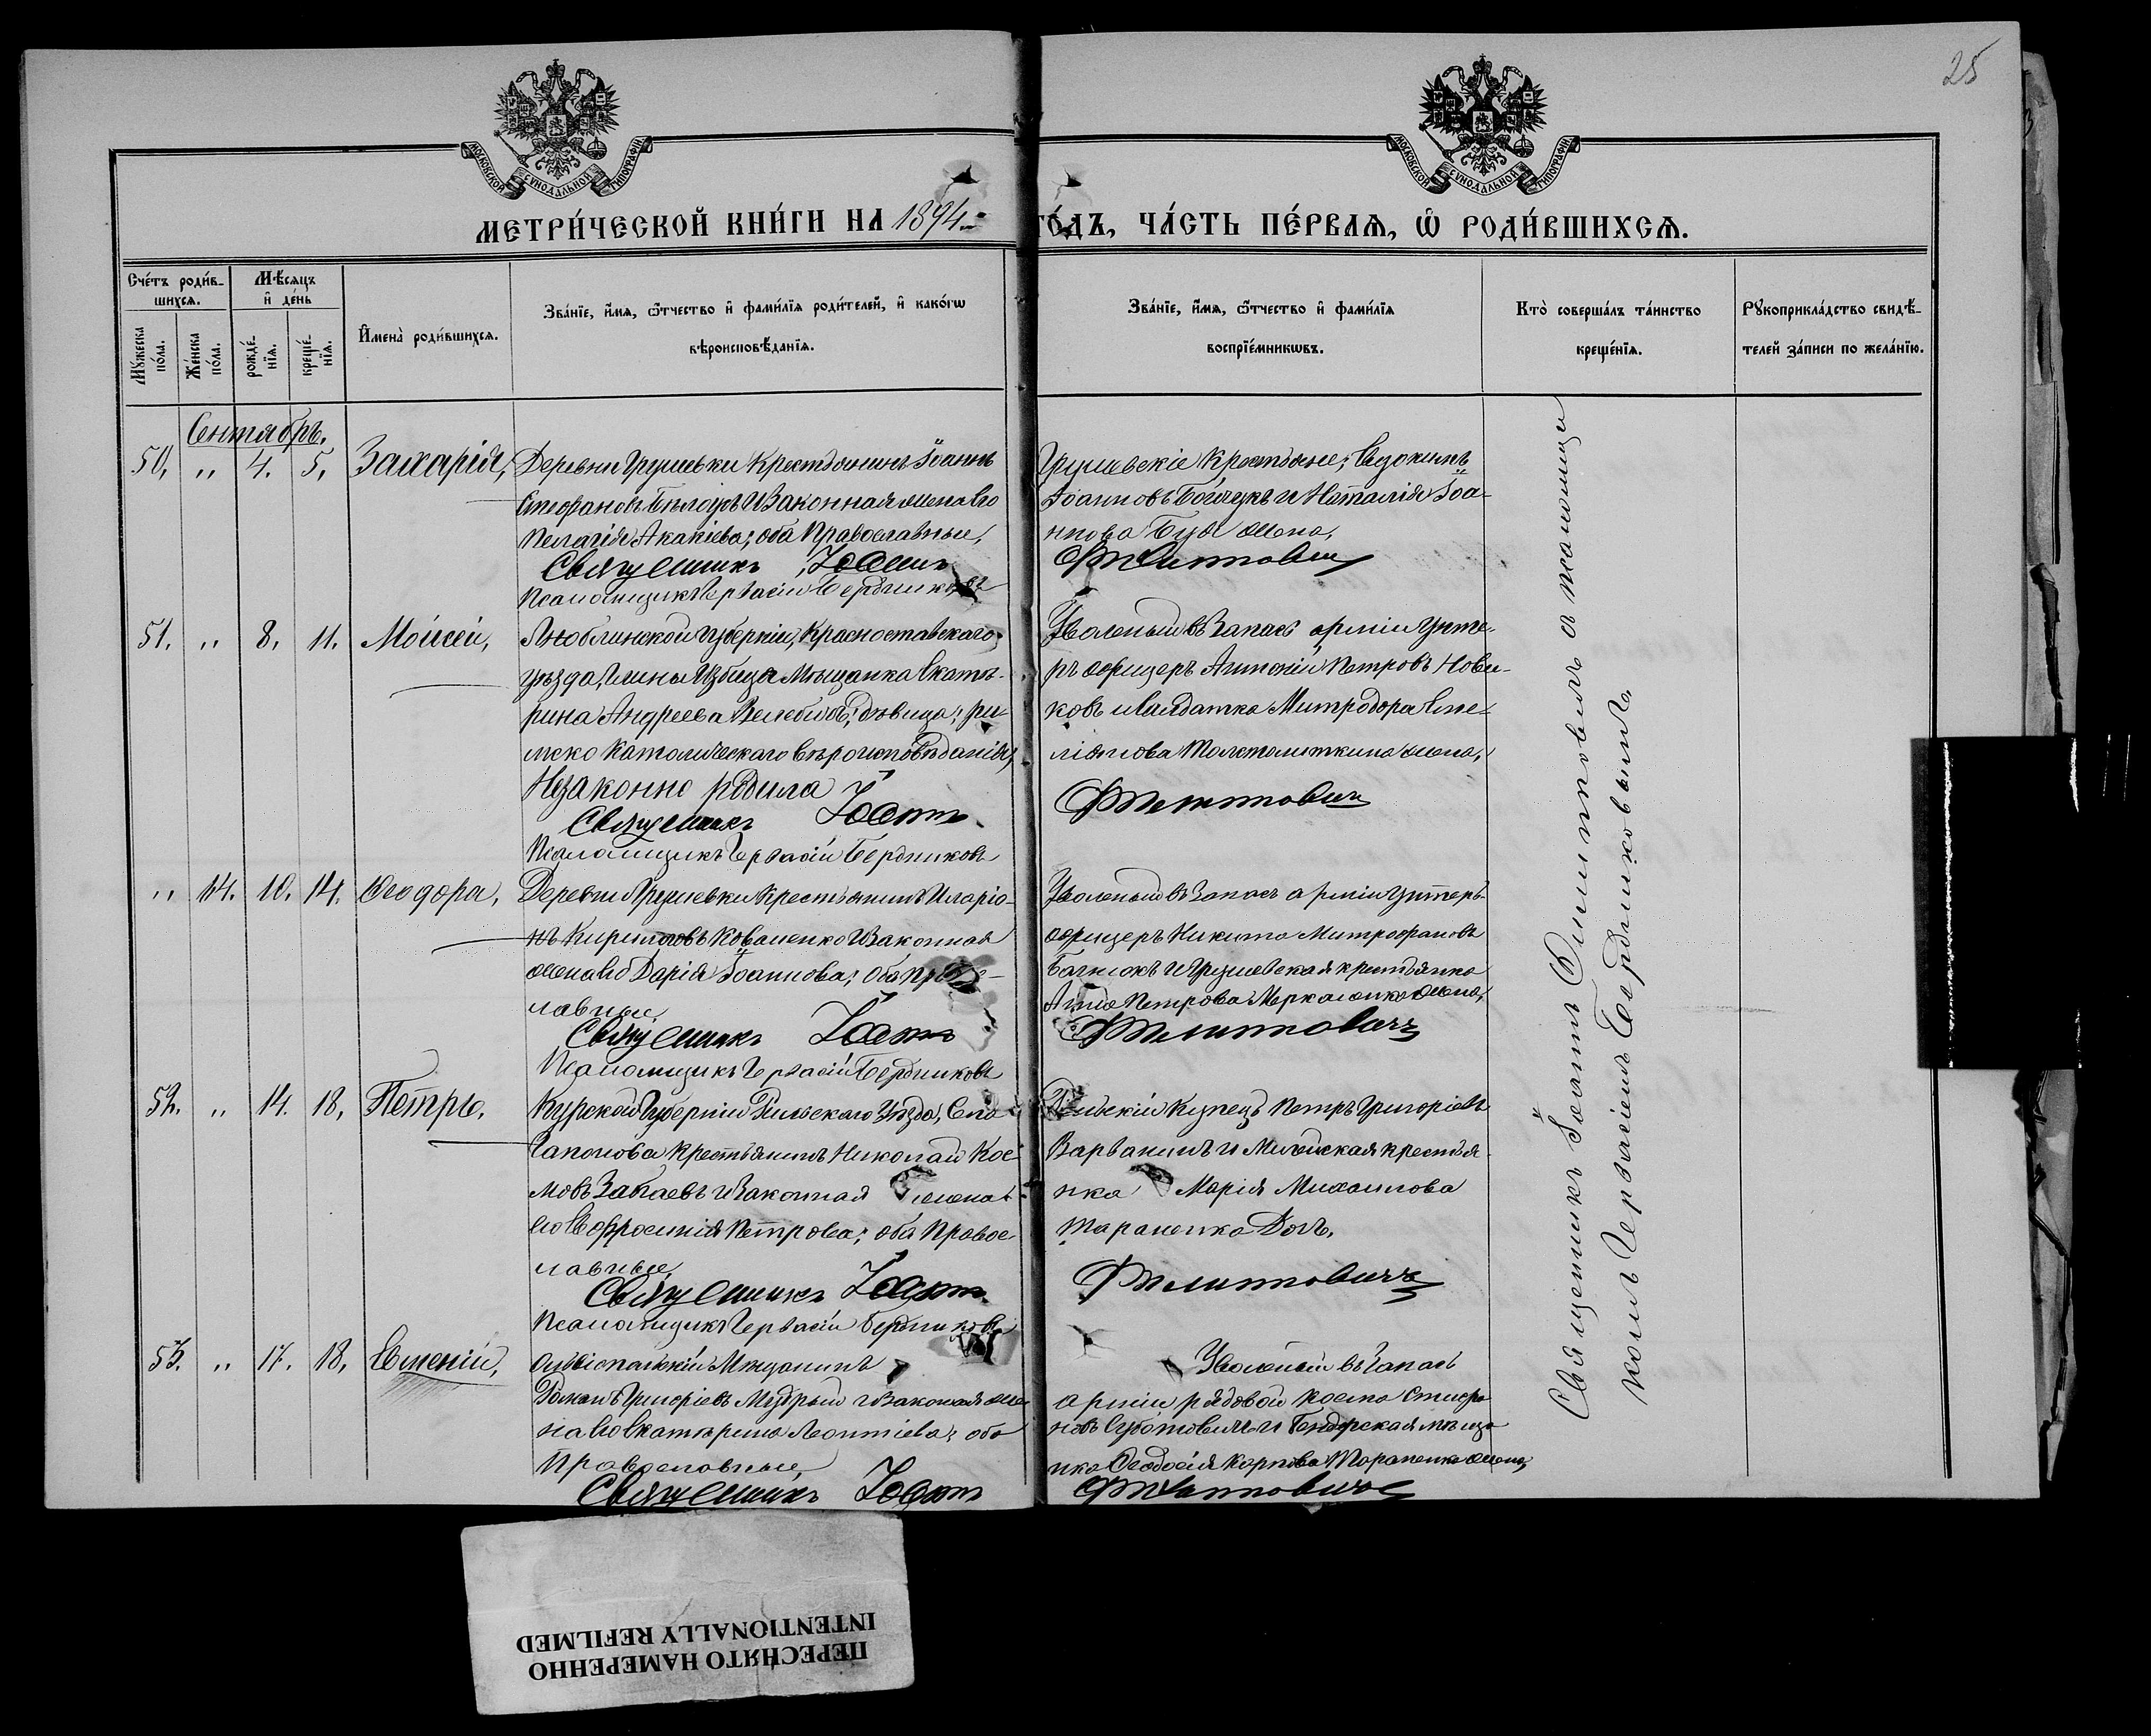 25
МОСКОВСКОЙ СУНОДАЛЬНОЙ ТИПОГРАФІИ
МОСКОВСКОЙ СУНОДАЛЬНОЙ ТИПОГРАФІИ
МЕТРИ́ЧЕСКОЙ КНИ́ГИ НА 1894 ГО́ДЪ, ЧА́СТЬ ПЕ́РВАѦ, Ѽ РОДИ́ВШИХСѦ.
Сче́тъ роди́в-
шихсѧ.
Мѣ́сѧцъ
и҆ де́нь
Мꙋ́жеска
по́ла.
Же́нска
по́ла.
рожде́-
нїѧ.
креще́-
нїѧ.
И҆мена̀ роди́вшихсѧ.
Зва́нїе, и҆́мѧ, ѻ҆́тчество и҆ фами́лїѧ роди́телей, и҆ како́гѡ
вѣроисповѣ́данїѧ.
Зва́нїе, и҆́мѧ, ѻ҆́тчество и҆ фами́лїѧ
воспрїе́мникѡвъ.
Кто̀ соверша́лъ та́инство
креще́нїѧ.
Рꙋкоприкла́дство свидѣ́-
телей за́писи по жела́нїю.
Сентябрь.
50. " 4. 5. Захарія,
Деревни Грушевки Крестьянинъ Іоаннъ
Стефановъ и Законная жена его
Пелагія Акакіева; оба Православные,
Священникъ Іоаннъ
Псаломщикъ Гервасій Бердниковъ
Грушевскіе Крестьяне;
Іоанновъ и Наталія Іоа-
ннова жена,
Филипповичъ
51. " 8. 11. Моисей,
Люблинской Губерніи, Красноставскаго
уѣзда, Гмины Избица Мѣщанка Екате-
рина Андреева дѣвица; ри-
мско Католическаго вѣроисповѣданія,
Незаконно родила
Священникъ Іоаннъ
Псаломщикъ Гервасій Бердниковъ
Уволеный въ Запасъ арміи Унте-
ръ офицеръ Антоній Петровъ Нови-
ковъ и Солдатка Митродора Еме-
ліянова жена,
Филипповичъ
" 14. 10. 14. Ѳеодора,
Деревни Грушевки Крестьянинъ Иларіо-
нъ Кириловъ Коваленко и Законная
жена его Дарія Іоаннова; оба Правос-
лавные,
Священникъ Іоаннъ
Псаломщикъ Гервасій Бердниковъ
Уволеный въ Запасъ арміи Унтеръ-
офицеръ Никита Митрофановъ
и Грушевская крестьянка
Анна Петрова жена,
Филипповичъ
52. " 14. 18. Петръ,
Курской Губерніи Рильскаго Уѣзда, Села
Гапонова Крестьянинъ Николай Кос-
мовъ Забаевъ и Законная жена
его Евфросинія Петрова; оба Правос-
лавные,
Священникъ Іоаннъ
Псаломщикъ Гервасій Бердниковъ
Рильскій Кузнецъ Петръ Григоріевъ
и крестья-
нка Марія Михаилова
Тараненко Дочь,
Филипповичъ
53. " 17. 18. Евменій,
Мѣщанинъ
Романъ Григоріевъ Мудрый и Законная же-
на его Екатерина Леонтіева; оба
Православные,
Священникъ Іоаннъ
Уволеный въ Запасъ
арміи рядовой Косма Стефа-
новъ и Бендерская мѣща-
нка Ѳеодосія Карпова Тараненко жена,
Филипповичъ
Священникъ Іоаннъ Филипповичъ а псаломщи-
комъ Гервасіемъ Бердниковымъ.
ПЕРЕСНЯТО НАМЕРЕННО
INTENTIONALLY REFILMED